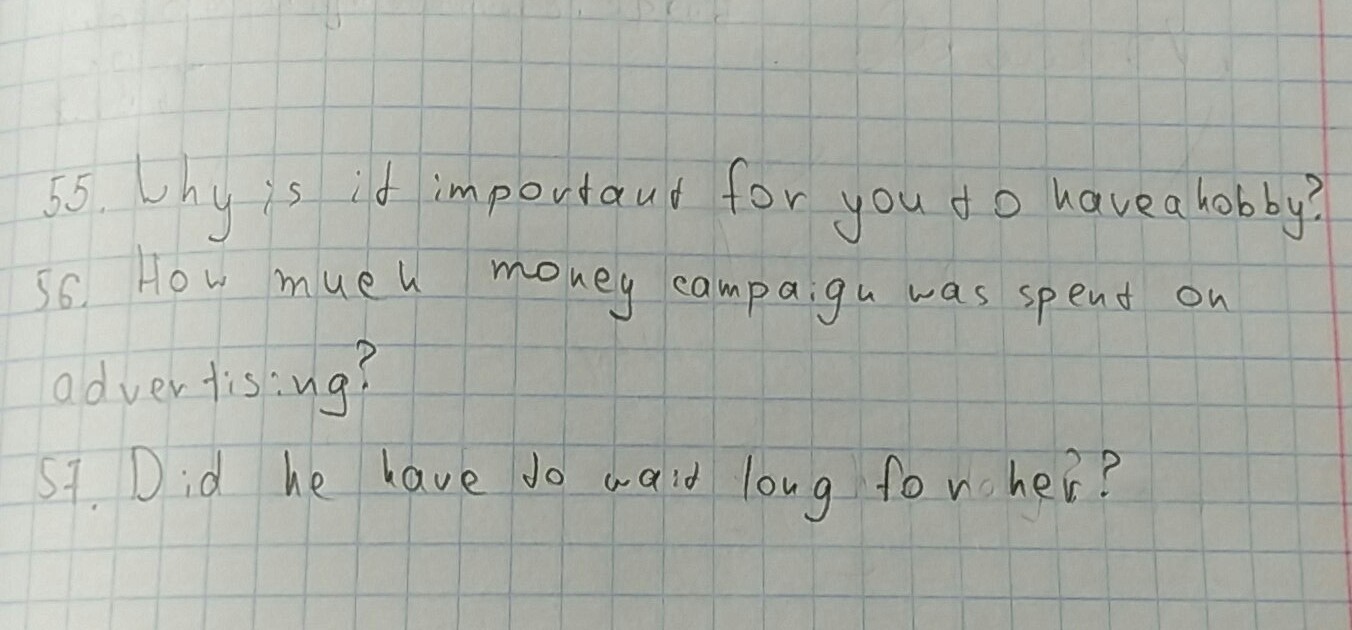 55. Why is it important for you to have a hobby?
56. How much money campaign was spent on
advertising?
57. Did he have to wait long for her?